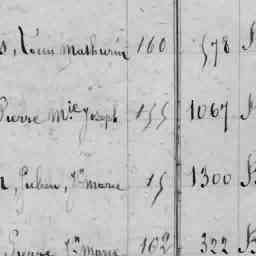 Louis Mathurin 160 578
Pierre Mie Joseph 155 1067
Julien, Jn Marie 15 1300
Pierre Jn Marie 162 322